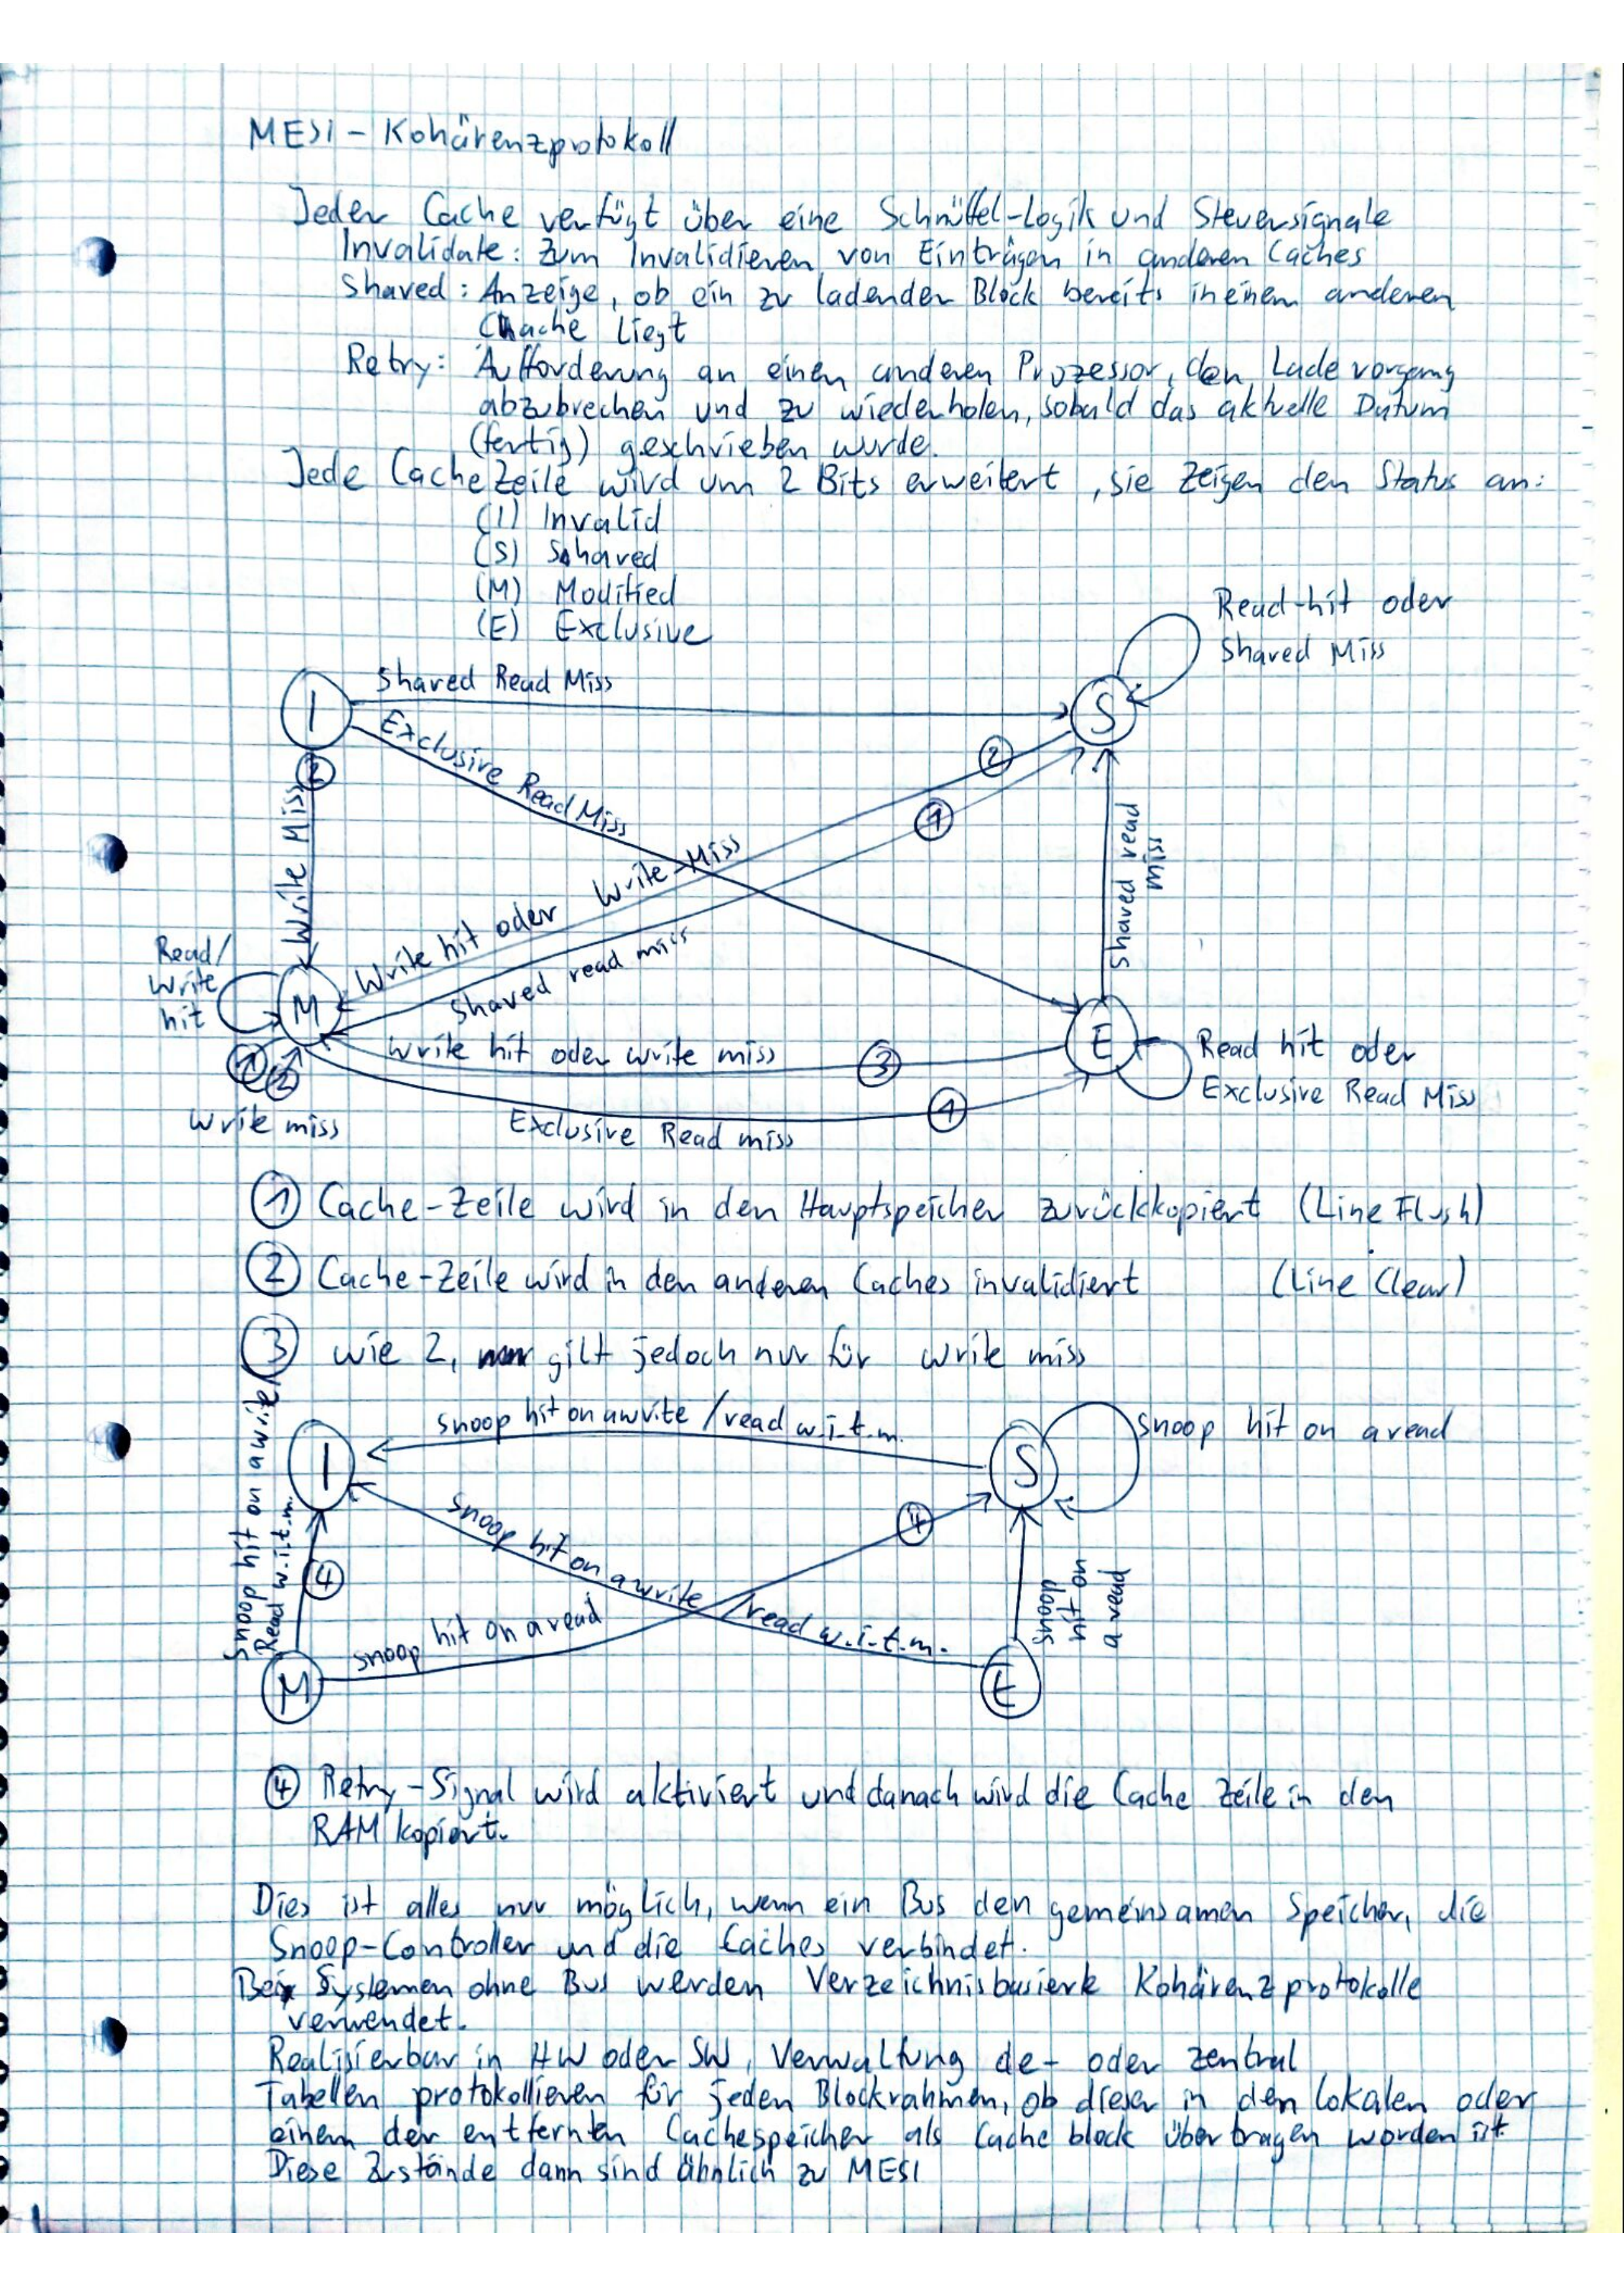 MESI - Kohärenzprotokoll
Jeder Cache verfügt über eine Schnüffel-Logik und Steuersignale
Invalidate: Zum Invalidieren von Einträgen in anderen Caches
Shared: Anzeige, ob ein zu ladender Block bereits in einem anderen
Cache liegt
Retry: Aufforderung an einen anderen Prozessor, den Ladevorgang
abzubrechen und zu wiederholen, sobald das aktuelle Datum
(fertig) geschrieben wurde.
Jede Cache Zeile wird um 2 Bits erweitert, sie zeigen den Status an:
(I) Invalid
(S) Shared
(M) Modified
(E) Exclusive
Read-hit oder
Shared Miss
I
Shared Read Miss
S
Exclusive Read Miss
2
2
1
Write Miss
Write hit oder Write-Miss
Shared read miss
Shared read
miss
Read/
Write
hit
M
E
Write hit oder write miss
3
Read hit oder
Exclusive Read Miss
1
2
Write miss
Exclusive Read miss
1
1 Cache-Zeile wird in den Hauptspeicher zurückkopiert (Line Flush)
2 Cache-Zeile wird in den anderen Caches invalidiert (Line Clear)
3 wie 2, gilt jedoch nur für write miss
snoop hit on a write / read w.i.t.m.
I
S
snoop hit on a read
Snoop hit on a write/
Read w.i.t.m.
4
snoop hit on a write / read w.i.t.m.
4
snoop hit on a read
snoop
hit on
a read
M
E
4 Retry-Signal wird aktiviert und danach wird die Cache Zeile in den
RAM kopiert.
Dies ist alles nur möglich, wenn ein Bus den gemeinsamen Speicher, die
Snoop-Controller und die Caches verbindet.
Bei Systemen ohne Bus werden Verzeichnisbasierte Kohärenzprotokolle
verwendet.
Realisierbar in HW oder SW, Verwaltung de- oder zentral
Tabellen protokollieren für jeden Blockrahmen, ob dieser in den lokalen oder
einem der entfernten Cachespeicher als Cache block übertragen worden ist.
Diese Zustände dann sind ähnlich zu MESI